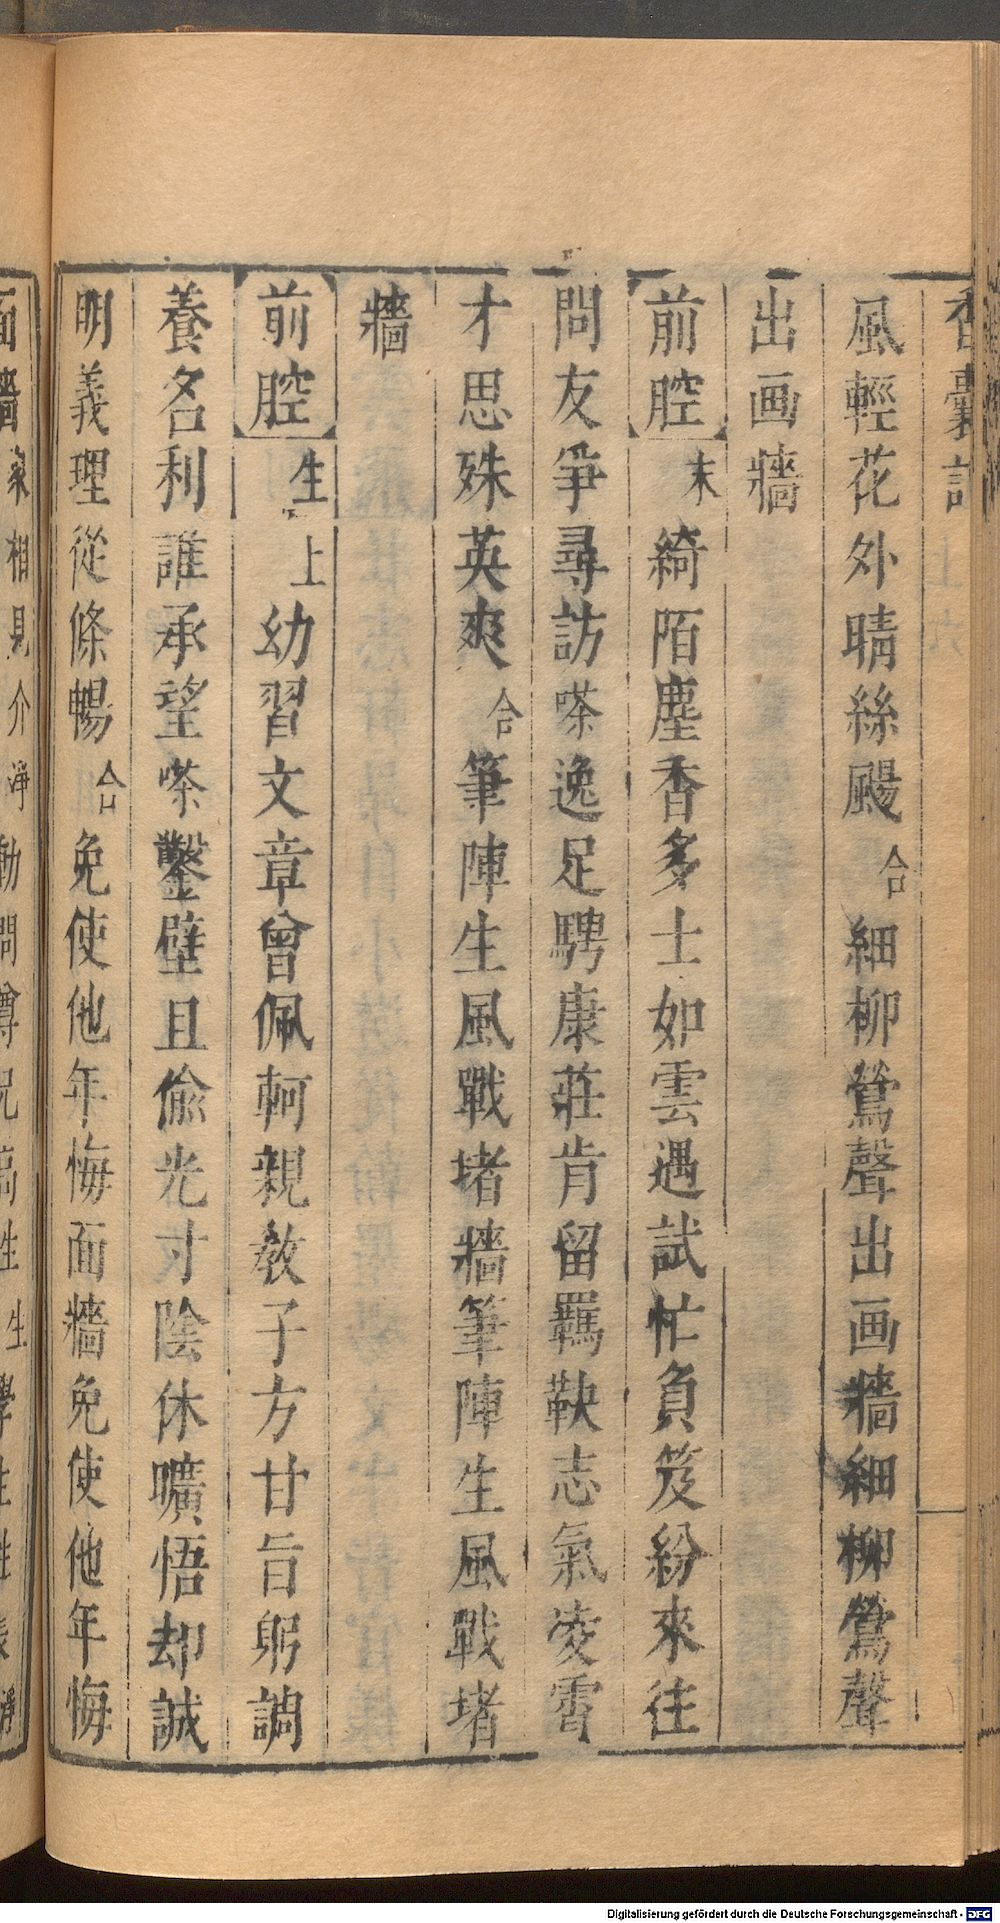 香囊記
風輕花外晴絲颺合細柳鶯聲出画牆細柳鶯聲
出画牆
前腔末綺陌塵香多士如雲遇試忙負笈紛來往
問友爭尋訪嗏逸足騁康莊肯留羈鞅志氣凌霄
才思殊英爽合筆陣生風戰堵牆筆陣生風戰堵
牆
前腔生上幼習文章曾佩軻親教子方甘旨躬調
養名利誰承望嗏鑿壁且偷光寸陰休曠悟却誠
明義理從條暢合免使他年悔面牆免使他年悔
面牆衆相見介淨動問尊兄高姓生學生姓張淨
Digitalisierung gefördert durch die Deutsche Forschungsgemeinschaft - DFG